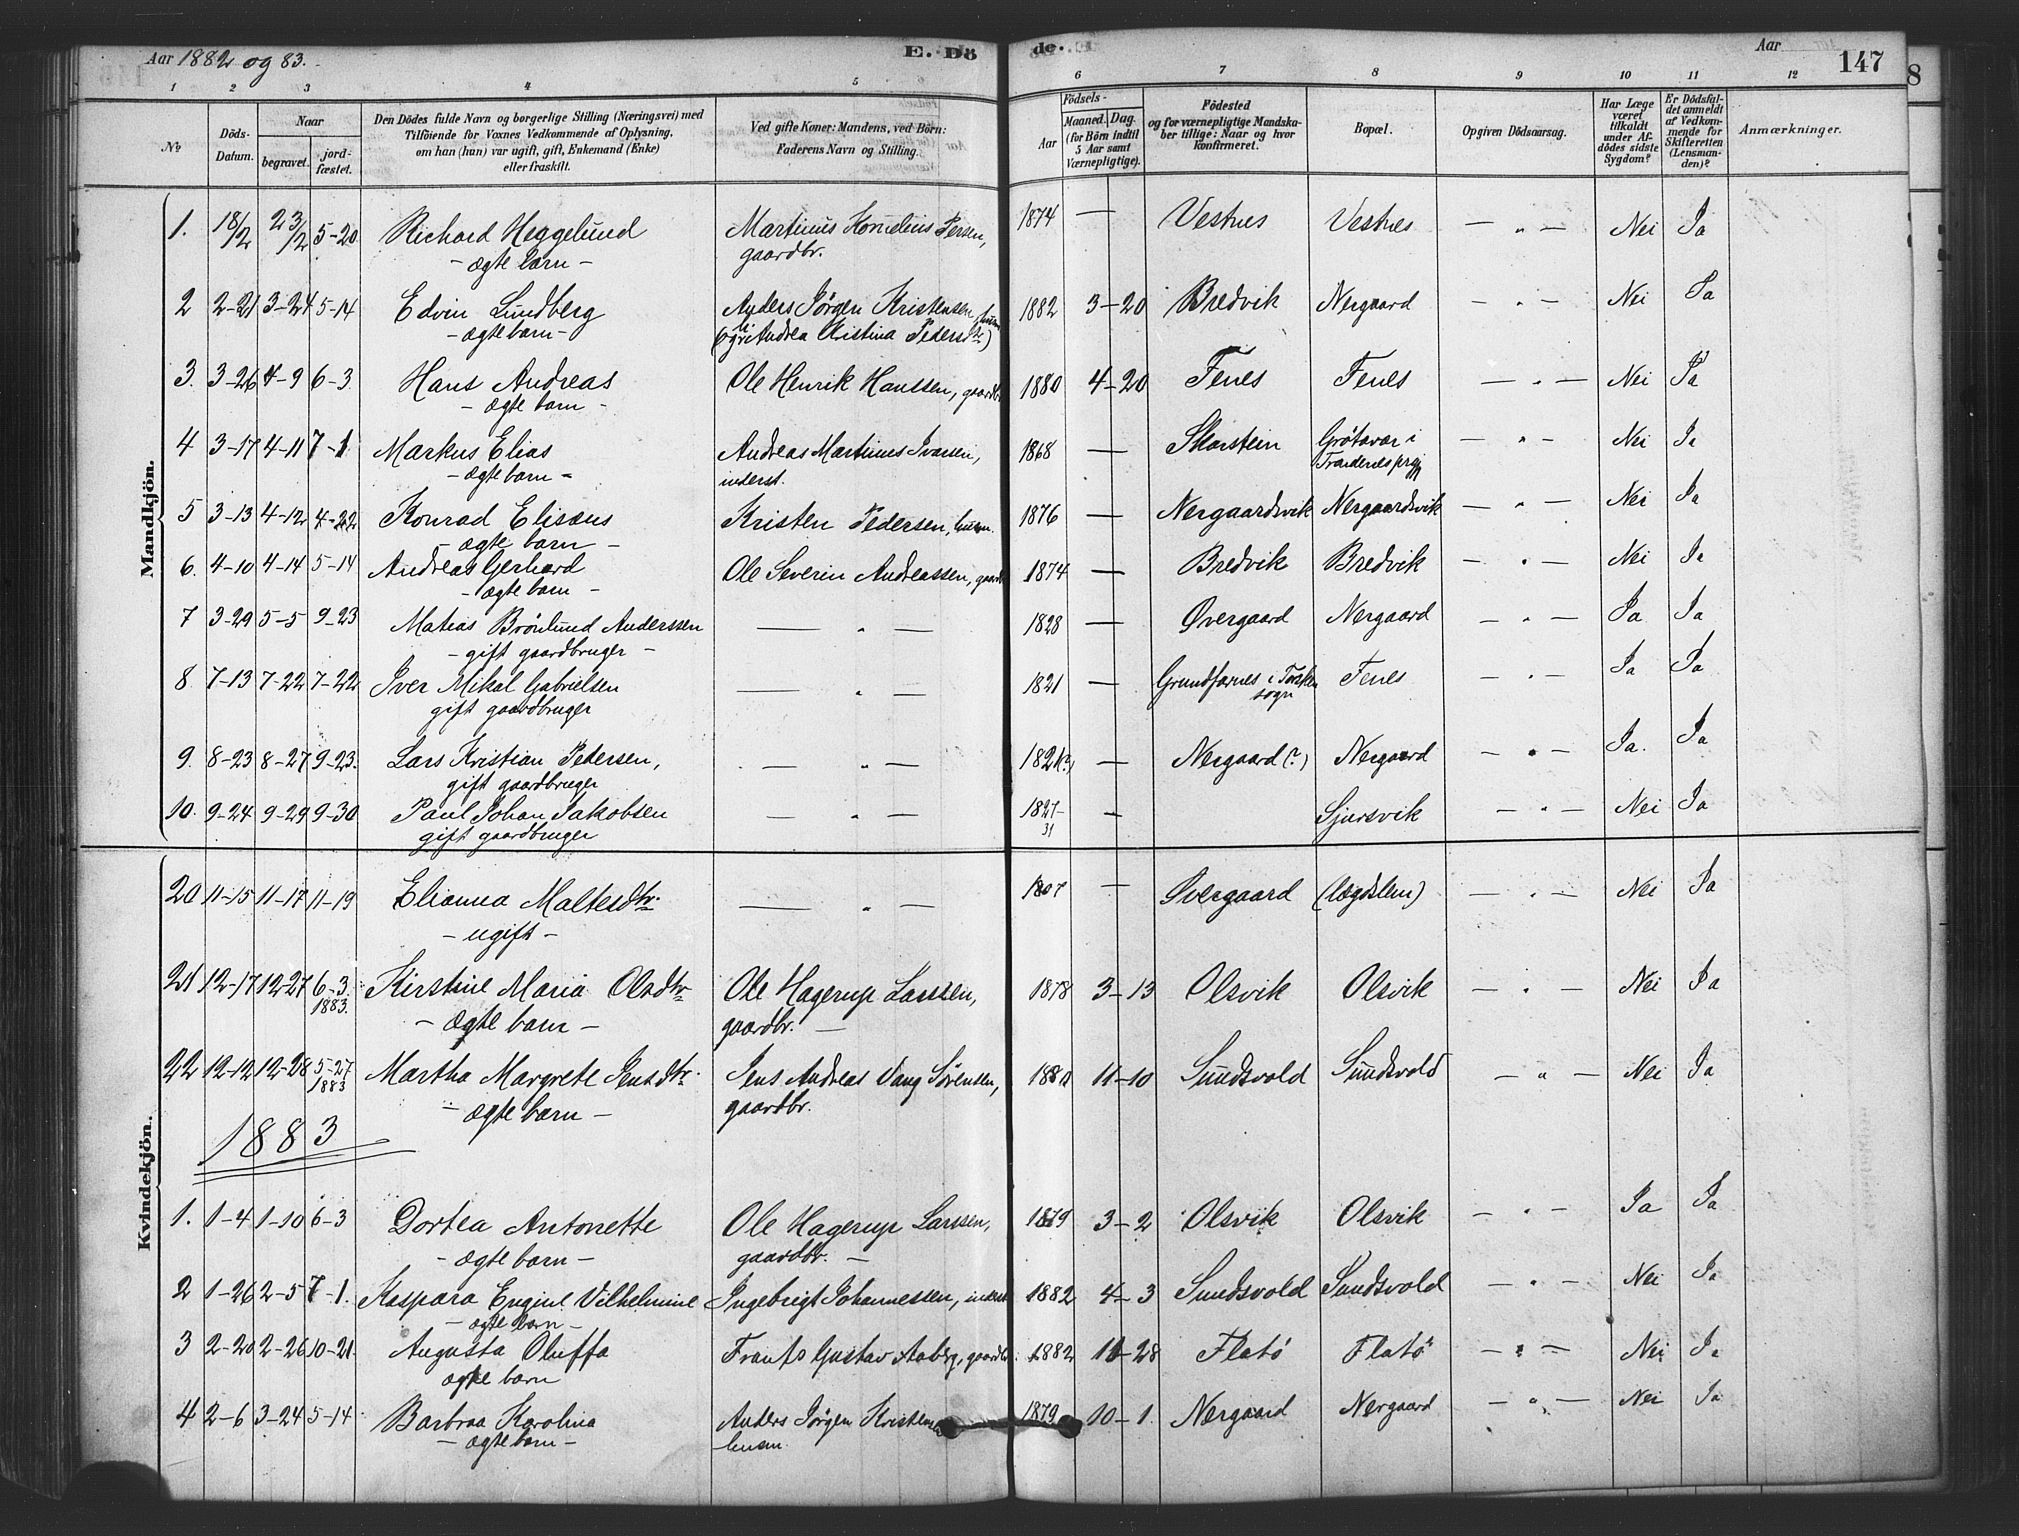 Aar 1882 og 83.
E. Dö
de.
Aar
147
1 2 3 4 5 6 7 8 9 10 11 12
№
Döds-Datum.
Naar
begravet.
jordfæstet.
Den Dödes fulde Navn og borgerlige Stilling (Næringsvei) med
Tilföiende for Voxnes Vedkommende af Oplysning,
om han (hun) var ugift, gift, Enkemand (Enke)
eller fraskilt.
Ved gifte Koner: Mandens, ved Börn:
Faderens Navn og Stilling.
Födsels-
Aar
Maaned. Dag.
(for Börn indtil
5 Aar samt
Værnepligtige).
Födested
og for værnepligtige Mandska-
ber tillige: Naar og hvor
konfirmeret.
Bopæl.
Opgiven Dödsaarsag.
Har Læge
været
tilkaldt
under Af-
dödes sidste
Sygdom?
Er Dödsfal-
det anmeldt
af Vedkom-
mende for
Skifteretten
(Lensman-
den)?
Anmærkninger.
Mandkjön.
1. 18/2 23/2 5-20 Richard Heggelund Martinus Kornelius Persen, 1874 — Vestnes Vestnes — „ — Nei Ja
- ægte barn - gaardbr.
2 2-21 3-24 5-14 Edvin Lundberg Anders Jörgen Kristensen, 1882 3-20 Bredvik Nergaard — „ — Nei Ja
- ægte barn - Andrea Kristina Peders
3. 3-26 4-9 6-3 Hans Andreas Ole Henrik Hanssen, gaardb 1880 4-20 Fenes Fenes — „ — Nei Ja
- ægte barn -
4 3-17 4-11 7-1 Markus Elias Andreas Martinus Ivarsen, 1868 — Skarstein Grötavær i — „ — Nei Ja
- ægte barn - inderst. Trandenes prgj
5 3-13 4-12 4-22 Konrad Elisæus Kristen Pedersen, husm. 1876 — Nergaardsvik Nergaardsvik — „ — Nei Ja
- ægte barn -
6. 4-10 4-14 5-14 Andreas Gerhard Ole Severin Andreassen, gaardb 1874 — Bredvik Bredvik — „ — Nei Ja
- ægte barn -
7 3-29 5-5 9-23 Matias Brönlund Anderssen — „ — 1828 — Øvergaard Nergaard — „ — Ja Ja
- gift gaardbruger -
8 7-13 7-22 7-22 Iver Mikal Gabrielsen — „ — 1821 — Grundfarnes i Torsken Fenes — „ — Ja Ja
gift gaardbruger sogn
9. 8-23 8-27 9-23. Lars Kristian Pedersen, — „ — 1821(?) — Nergaard (?) Nergaard — „ — Ja. Ja
gift gaardbruger
10. 9-24 9-29 9-30 Paul Johan Jakobsen — „ — 1827- — Sjursvik — „ — Nei Ja
gift gaardbruger 31
Kvindekjön.
20 11-15 11-17 11-19 Elianna Maltesdtr. — „ — 1807 — Øvergaard (lægdslem) — „ — Nei Ja
- ugift -
21 12-17 12-27 6-3 Kirstine Maria Olsdtr Ole Hagerup Larssen, 1878 3-13 Olsvik Olsvik — „ — Nei Ja
1883. - ægte barn - gaardbr. —
22 12-12 12-28 5-27 Martha Margrete Jensdtr. Jens Andreas Vang Sörensen, 11-10 Sundsvold Sundsvold — „ — Nei Ja
1883 - ægte barn - gaardbr.
1883
1. 1-4 1-10 6-3 Dortea Antonette Ole Hagerup Larssen, 1879 3-2 Olsvik Olsvik — „ — Ja Ja
- ægte barn - gaardbr. —
2 1-26 2-5 7-1. Kaspara Engine Vilhelmine Ingebrigt Johannessen, inderst 1882 4-3 Sundsvold Sundsvold — „ — Nei Ja
- ægte barn -
3 2-20 2-26 10-21. Augusta Oluffa Frants Gustav Aaberg, gaardbr. 1882 11-28 Flatö Flatö — „ — Nei Ja
ægte barn
4 2-6 3-24 5-14 Barbraa Karolina Anders Jörgen Kristens 1879 10-1. Nergaard Nergaard — „ — Nei Ja
- ægte barn - husm.